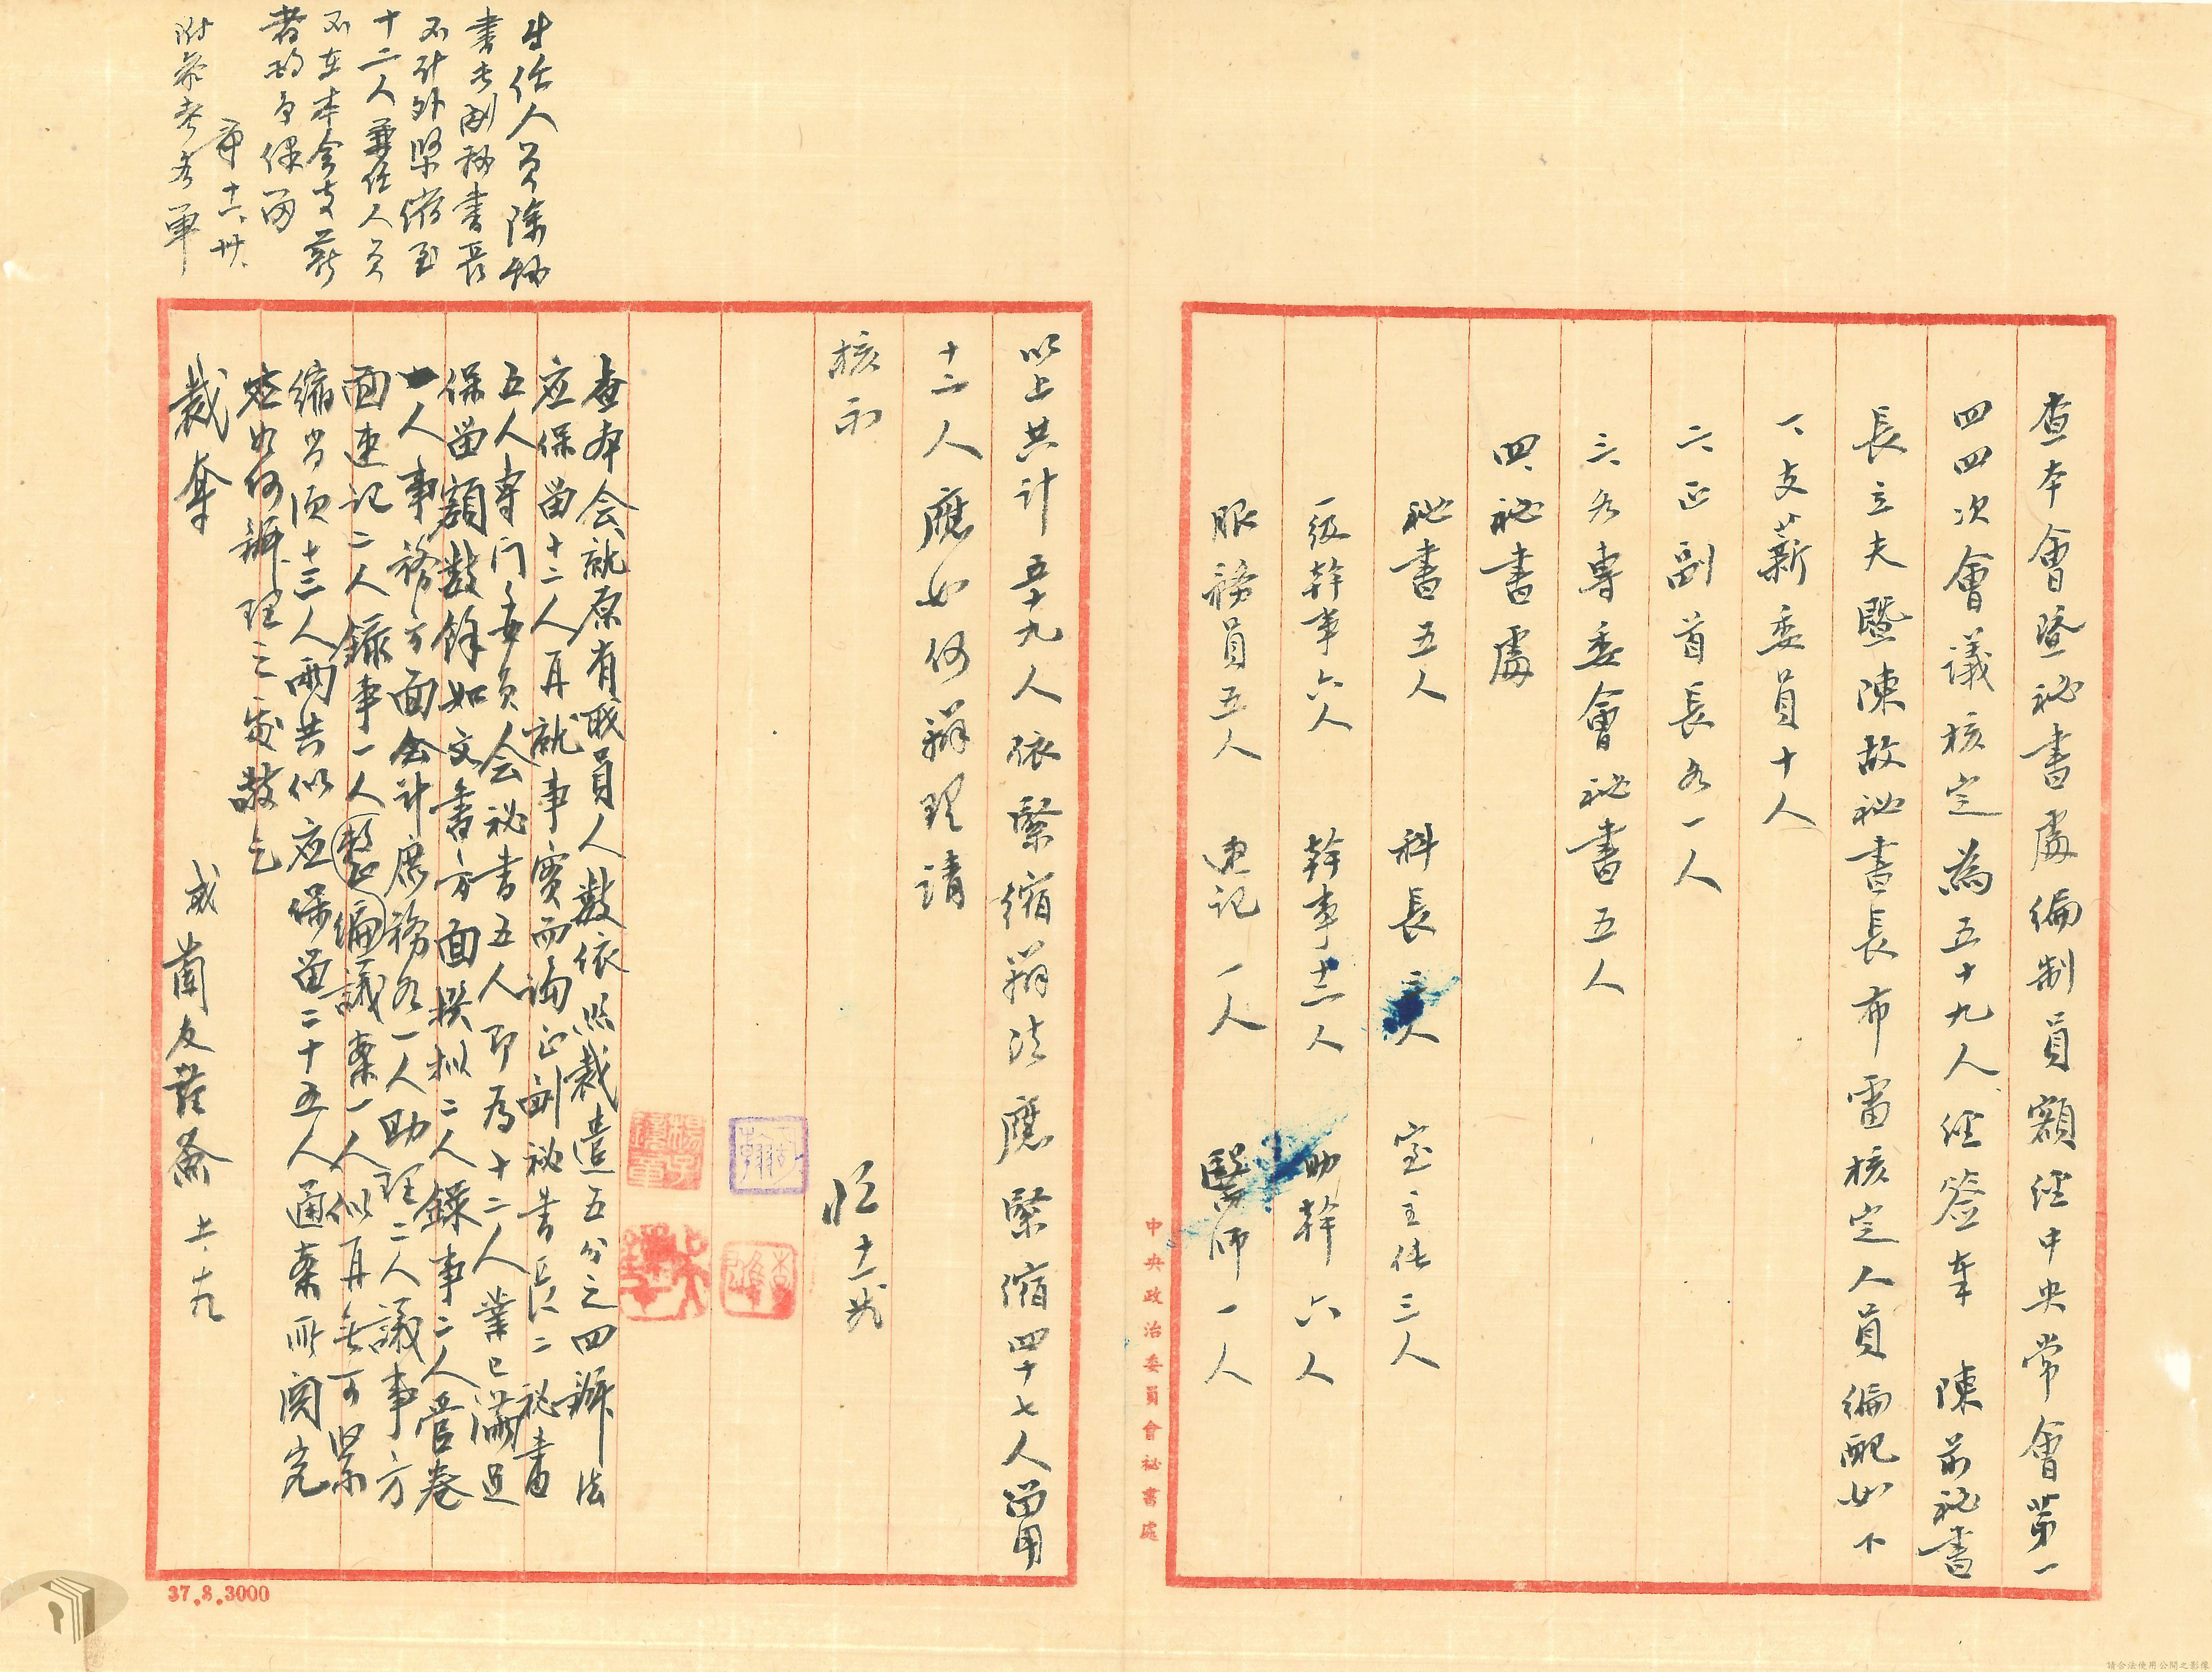 查本會暨祕書處編制員額經中央常會第一
四四次會議核定為五十九人經簽奉 陳前祕書
長立夫暨陳故祕書長布雷核定人員編配如下
一、支薪委員十人
二、正副首長各一人
三、各專委會祕書五人
四、祕書處
祕書五人 科長二人 室主任三人
一級幹事六人 幹事十二人 助幹六人
服務員五人 速記一人 醫師一人
中央政治委員會祕書處
以上共計五十九人依緊縮辦法應緊縮四十七人留用
十二人應如何辦理請
核示
十一
查本会就原有职員人数依照裁遣五分之四辦法
应保留十二人再就事实而論正副祕书長二祕書
五人専门委员会祕书五人即為十二人業已满过
保留額数餘如文書方面撰拟二人錄事二人管卷
一人事務方面会计庶務各一人助理二人議事方
面速记二人錄事一人整编議案一人似再無可緊
縮尚须十三人兩共似应保留二十五人通案所関究
应如何辦理之處敬乞
裁奪
十一、十九
专任人员除秘
書長副秘書長
不计外緊縮至
十二人兼任人员
不在本会支薪
者均予保留
十一、卅、
附參考名單
37.8.3000
請合法使用公開之影像